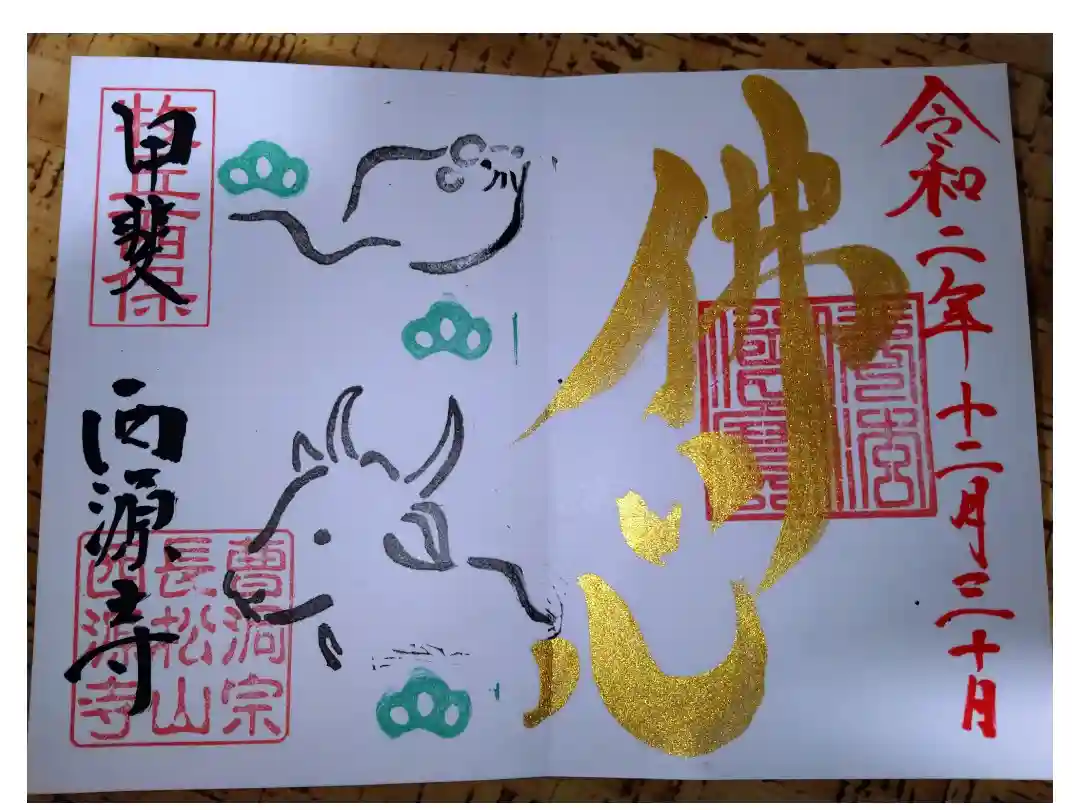 令和二年十二月三十月
佛心
甲斐
西源寺
曹洞宗
長松山
西源寺